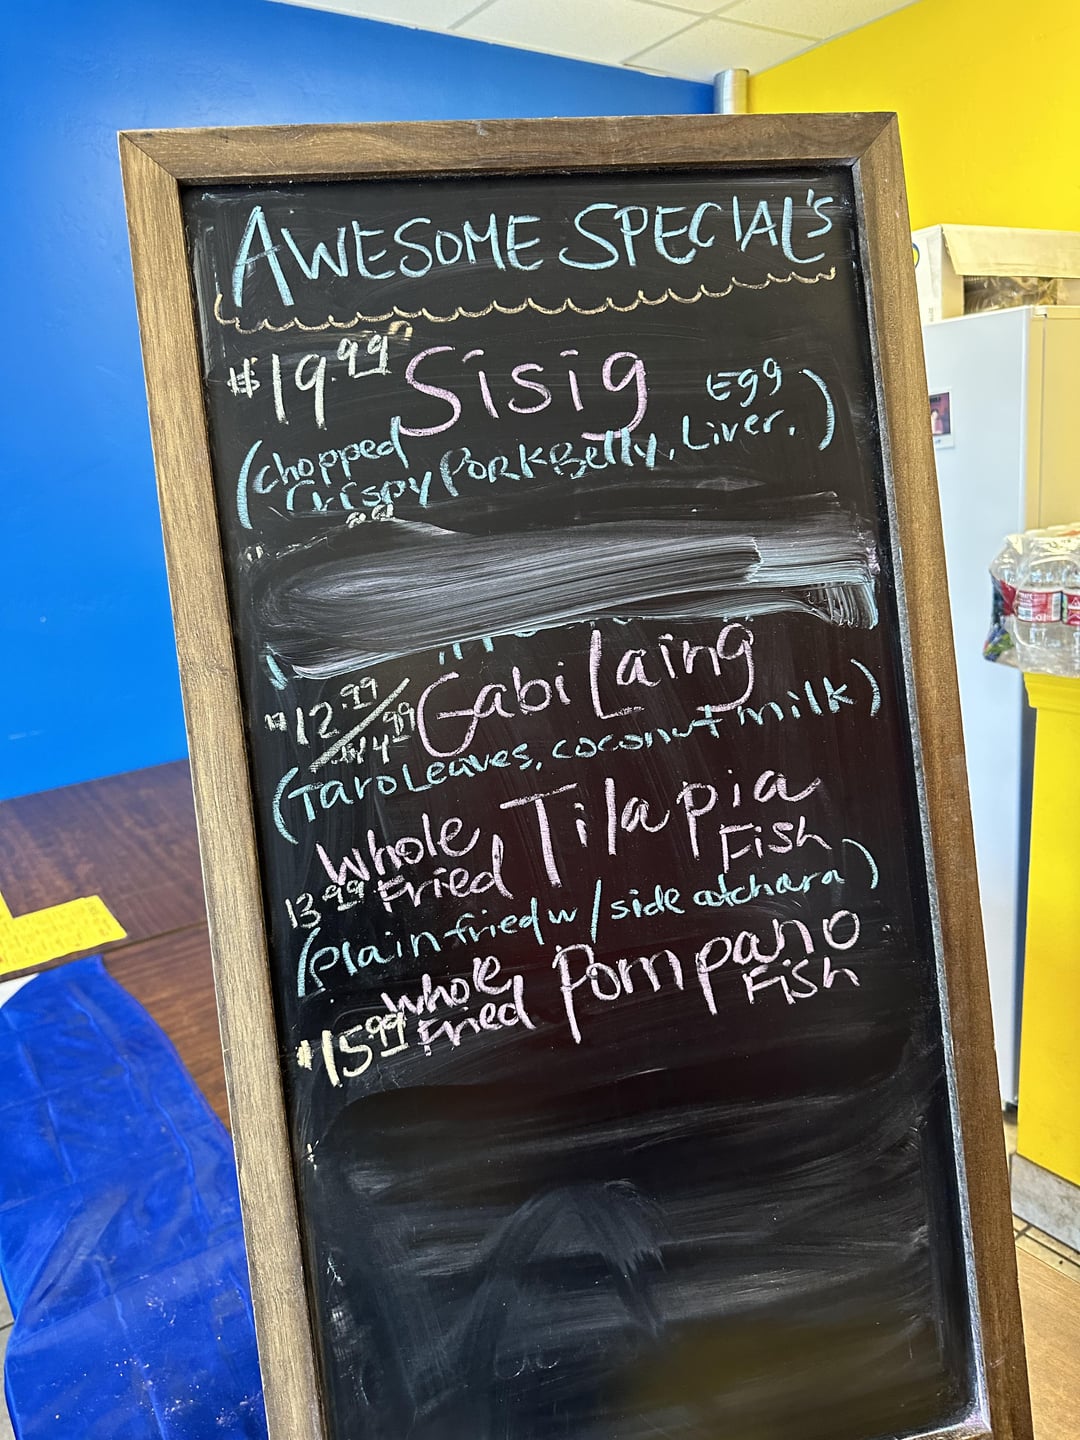 AWESOME SPECIAL'S
$19.99 Sisig
(chopped Crispy Pork Belly, Liver, Egg)
$12.99/$14.99 Gabi Laing
(Taro Leaves, coconut milk)
13.99 Whole Fried Tilapia Fish
(plain fried w/ side atchara)
$15.99 Whole Fried Pompano Fish